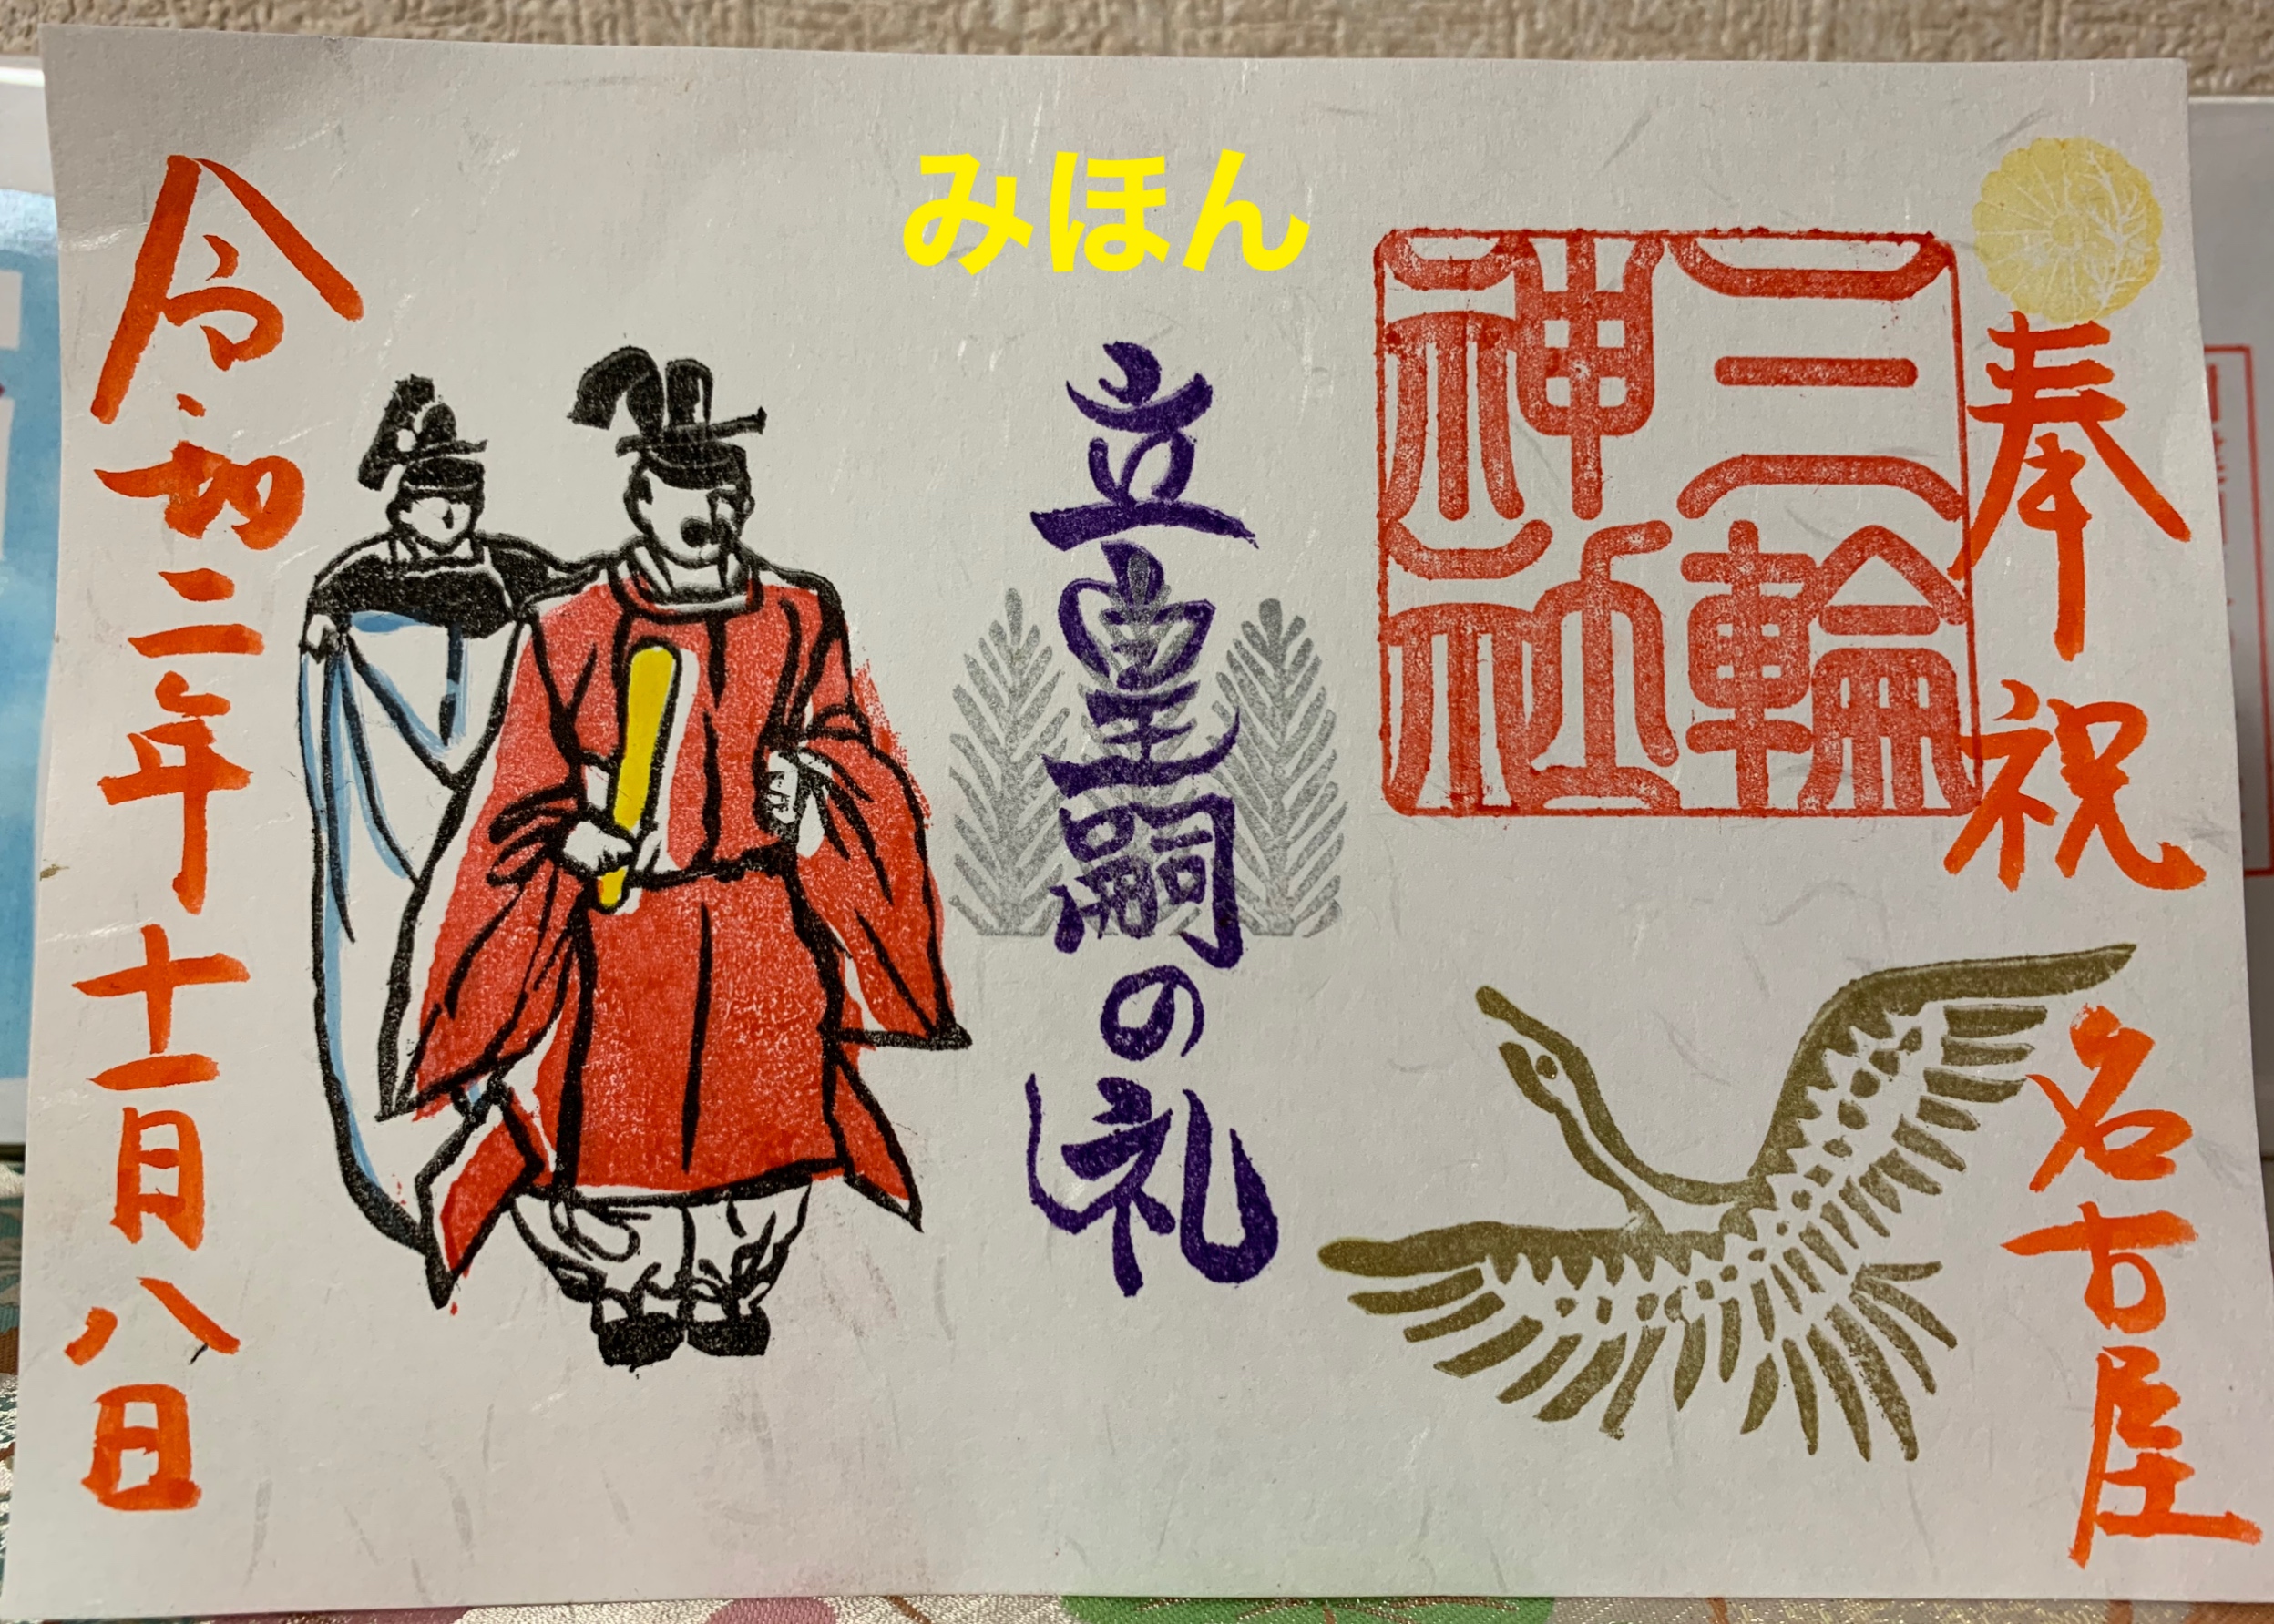 みほん
奉祝 名古屋
三輪
神社
立皇嗣の礼
令和二年十一月八日